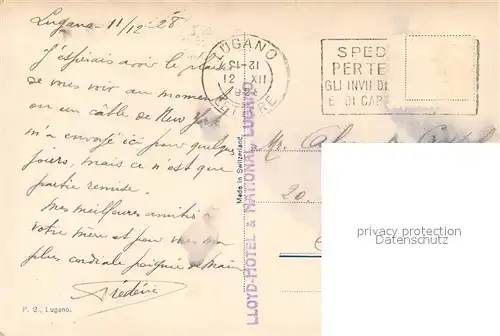 Lugano 11/12-28
J'espérais avoir le plaisir
de vous voir au moment
où un câble de New York
m'a envoyé ici pour quelques
jours, mais ce n'est que
partie remise.
Mes meilleures amitiés à
votre mère et pour vous ma
plus cordiale poignée de main
Frédéric
P. G., Lugano.
Made in Switzerland.
LLOYD-HOTEL & NATIONAL, LUGANO
LUGANO
12-13
12 XII
SPED
PER TE
GLI INVII DI
E DI CAP
20.
privacy protection
Datenschutz